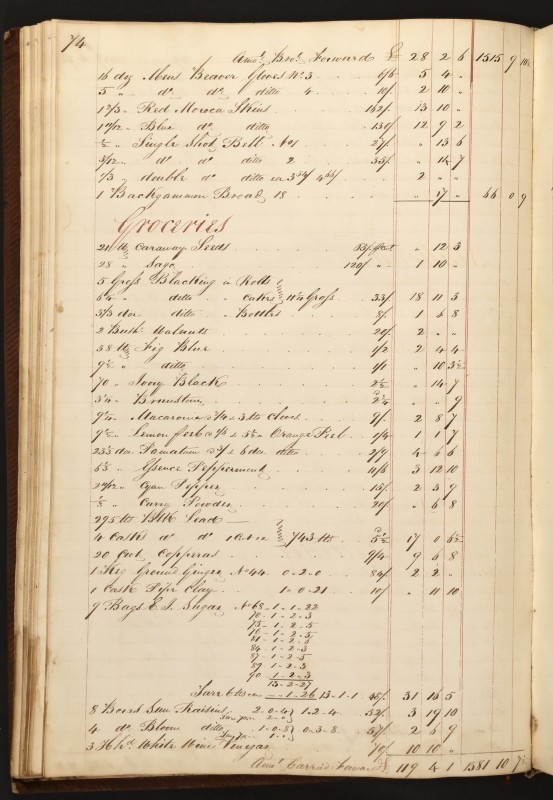 74
Amot. Brot. Forward £ 28 2 6 1515 9
16 dz Mens Beaver Gloves No 3 6/6 5 4 "
5 " do do ditto 4 10/ 2 10 "
Red Moroca Skins 162/ 13 10 "
1 11/12 " Blue do ditto 130/ 12 9 2
½ " Single Shot Belt No 1 27/ " 13 6
5/12 " do do ditto 2 35/ " 14 7
double do ditto ea 2 " "
1 Backgammon Broad 18 " 17 " 66 0 9
Groceries
21 lb Caraway Seeds " 12 3
28 " Sago 120/ " 1 10 "
5 Gross Blacking in Rolls
6¼ " ditto " Cakes 11¼ Gross 33/ 18 11 3
ditto " Bottles 8/ 1 6 8
2 Bush. Walnuts 20/ 2 " "
38 lb Fig Blue 1/2 2 4 4
9½ " ditto 1/1 " 10 3½
70 " Ivory Black 2½ " 14 7
Brimstone 2¼ " " 9
Macaroni & 3 lb Cloves 9/ 2 8 7
9½ " Lemon & Orange Peel 1/4 1 1 7
doz Pomatum & 6 doz ditto 2/9 4 6 6
Essence Pepperment 11/6 3 12 10
Cyan Pepper 15/ 2 3 9
Curry Powder 20/ " 6 8
295 lb Blk Lead
4 Casks do do 1 Cwt ea 743 lb 5½ 17 0 6½
20 Cwt Copperas 9/4 9 6 8
1 Keg Ground Ginger No 44 0-2-0 84/ 2 2 "
1 Cask Pipe Clay 1-0-21 10/ " 11 10
9 Bags E. I. Sugar No 68-1-1-22
70-1-2-3
75-1-2-5
76-1-2-5
81-1-2-3
84-1-2-3
87-1-2-5
89-1-2-3
90-1-2-3
13-2-27
Tare 1-26 13-1-1 48/ 31 16 5
8 Boxes Sun Raisins 2-0-4 1-2-4 52/ 3 19 10
4 do Bloom ditto 1-0-8 0-3-8 57/ 2 6 9
3 Hhds White Wine Vinegar 70/ 10 10 "
Amot. Carried Forward £ 119 4 1 1581 10